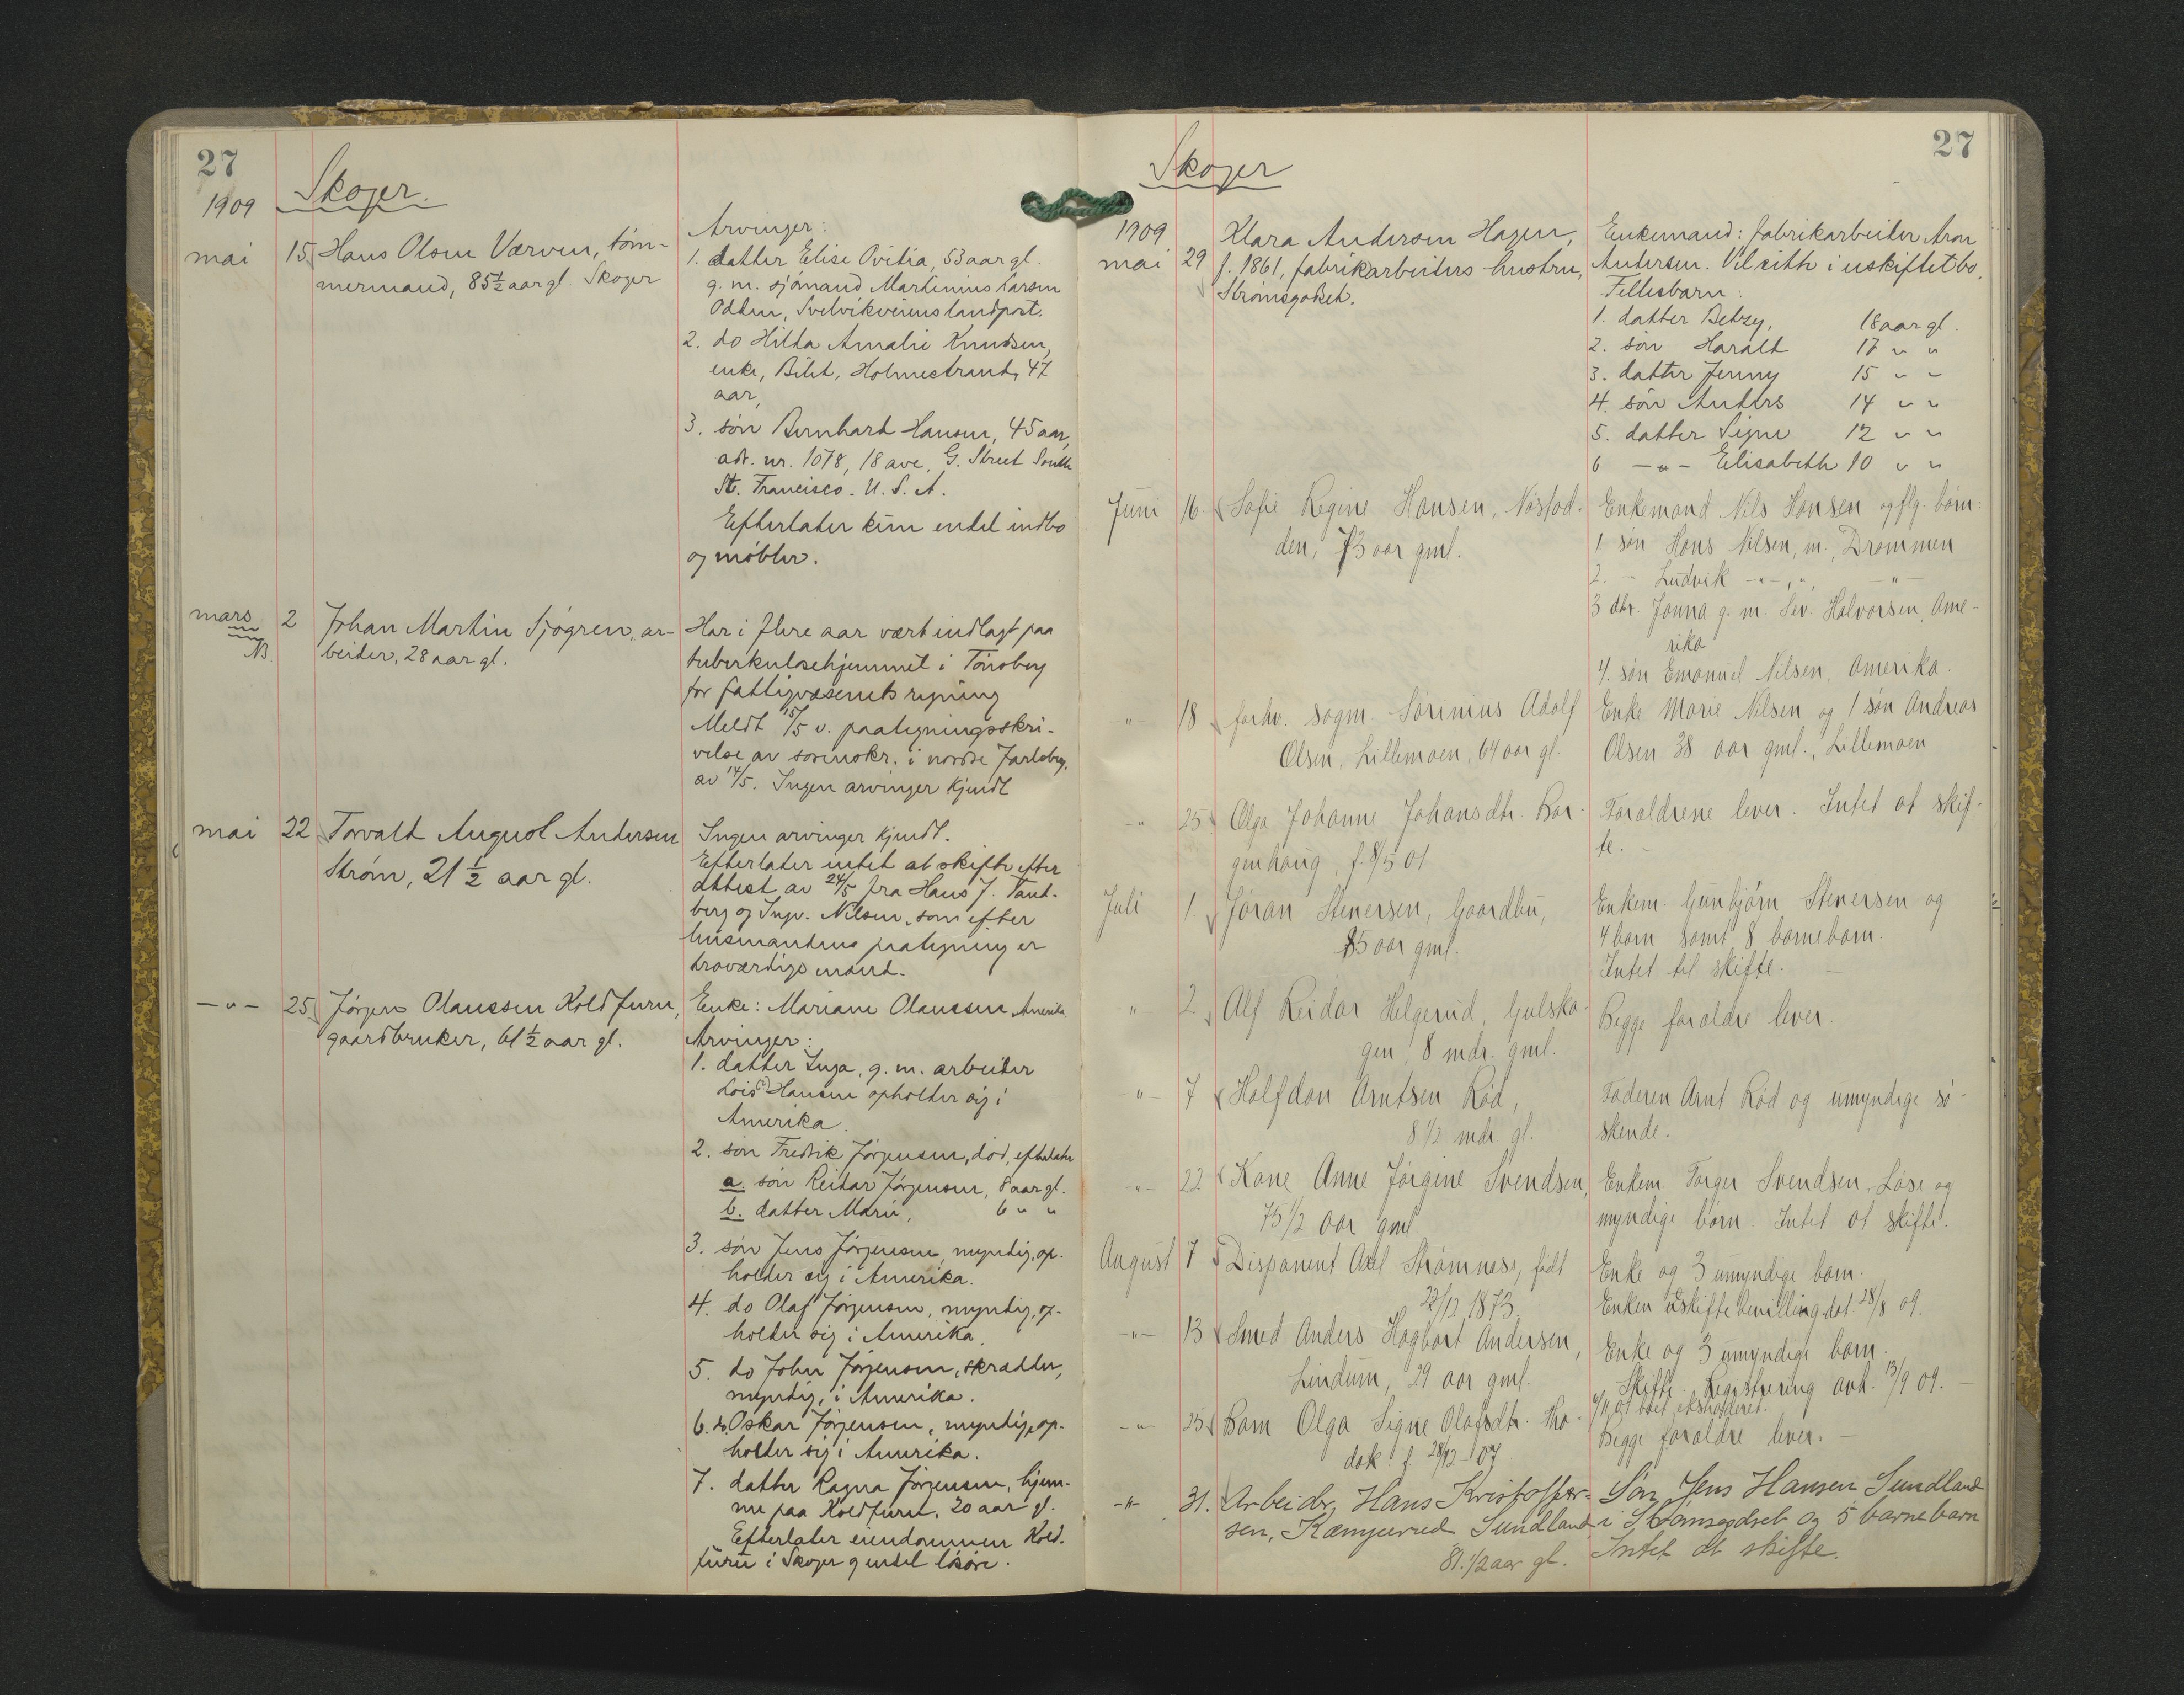 27
1909
Skoger.
mai 15 Hans Olsen Værven, tøm-
mermand, 85 1/2 aar gl. Skoger
Arvinger:
1. datter Elise Ovidia, 53 aar gl.
g. m. sjømand Martinius Larsen
Odden, Svelvikveiens landpost.
2. do Hilda Amalie Knudsen,
enke, Holmestrand, 47
aar,
3. søn Bernhard Hansen, 45 aar,
adr. nr. 1078, 18 ave, G. Street South
St. Francisco. U. S. A.
Efterlater kun endel indbo
og møbler.
mars 2 Johan Martin Sjøgren, ar-
NB beider, 28 aar gl.
Har i flere aar vært indlagt paa
tuberkulosehjemmet i Tønsberg
for fattigvæsenets regning
Meldt 15/5 v. paategningsskri-
velse av sorenskr. i nordre Jarlsberg.
av 14/5. Ingen arvinger kjendt
mai 22 Torvald August Andersen
Strøm, 21 1/2 aar gl.
Ingen arvinger kjendt.
Efterlater intet at skifte efter
attest av 24/5 fra Hans J. Tand-
berg og Ingv. Nilsen, som efter
lensmandens paategning er
troværdige mænd.
-"- 25 Jørgen Olaussen Koldfuru,
gaardbruker, 61 1/2 aar gl.
Enke: Mariane Olaussen, Amerika
Arvinger:
1. datter Inga, g. m. arbeider
Lois Hansen opholder sig i
Amerika.
2. søn Fredrik Jørgensen, død, efterlater
a. søn Reidar Jørgensen, 8 aar gl.
b. datter Marie, 6 " "
3. søn Jens Jørgensen, myndig, op-
holder sig i Amerika.
4. do Olaf Jørgensen, myndig, op-
holder sig i Amerika.
5. do John Jørgensen, skrædder,
myndig, i Amerika.
6. do. Oskar Jørgensen, myndig, op-
holder sig i Amerika.
7. datter Ragna Jørgensen, hjem-
me paa Koldfuru, 20 aar gl.
Efterlater eiendommen Kold-
furu i Skoger og endel løsøre.
27
Skoger
1909
mai 29 Klara Andersen Hagen,
f. 1861, fabrikarbeiders hustru,
Strømsgodset.
Enkemand: fabrikarbeider Aron
Andersen. Vil sitte i uskiftet bo.
Fellesbarn:
1. datter Betzy, 18 aar gl.
2. søn Harald 17 " "
3. datter Jenny 15 " "
4. søn Anders 14 " "
5. datter Signe 12 " "
6 -"- Elisabeth 10 " "
Juni 16. Sofie Regine Hansen,
den, 73 aar gml.
Enkemand Nils Hansen og flg. børn:
1 søn Hans Nilsen, m., Drammen
2. - Ludvik -"-, ", -"-
3 dtr. Jonna g. m. Sev. Halvorsen, Ame-
rika
4. søn Emanuel Nilsen, Amerika.
-"- 18 forhv. sagm. Sørinius Adolf
Olsen, Lillemoen, 64 aar gl.
Enke Marie Nilsen og 1 søn Andreas
Olsen 38 aar gml., Lillemoen
-"- 25 Olga Johanne Johansdtr. Bor-
genhaug, f. 8/5 01
Forældrene lever. Intet at skif-
te.
Juli 1. Jøran Stenersen,
85 aar gml.
Enkem. Gunbjørn Stenersen og
4 barn samt 8 barnebarn.
Intet til skifte.
-"- 2 Alf Reidar Helgerud, Gulsko-
gen, 8 mdr. gml.
Begge forældre lever.
-"- 7 Halfdan Arntsen Rød,
8 1/2 mdr. gl.
Faderen Arnt Rød og umyndige sø-
skende.
-"- 22 Kone Anne Jørgine Svendsen,
75 1/2 aar gml
Enkem Torger Svendsen, og
myndige børn. Intet at skifte.
August 7 Disponent Axel Strømnæs, født
22/12 1873
Enke og 3 umyndige barn.
Enken uskiftebevilling dat. 28/8 09.
-"- 13 Smed Anders Hagbart Andersen,
Lindum, 29 aar gml.
Enke og 3 umyndige barn.
Skifte. Registrering avh. 13/9 09.
boet ekstraderet.
-"- 25 Barn Olga Signe Olafsdtr.
f. 28/12 07
Begge forældre lever.
-"- 31. Arbeider Hans Kristoffer-
sen, Sundland
81. 1/2 aar gl.
Søn Jens Hansen Sundland
i Strømsgodset og 5 barnebarn
Intet at skifte.